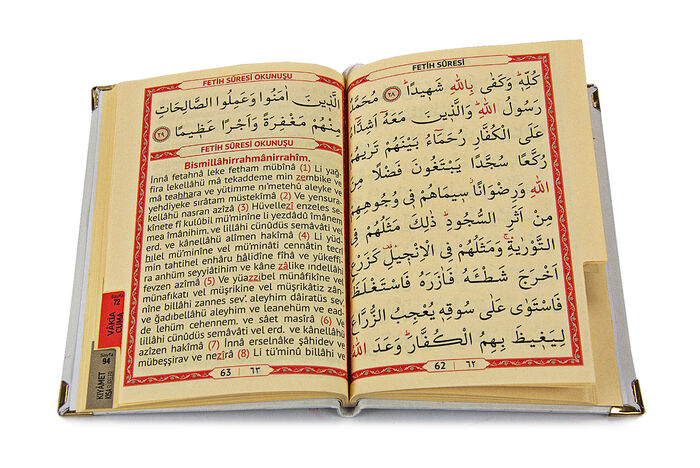 FETİH SÛRESİ
كُلِّهٖ وَكَفٰى بِاللّٰهِ شَهٖيدًا ﴿٢٨﴾ مُحَمَّدٌ
رَسُولُ اللّٰهِ وَالَّذٖينَ مَعَهُٓ اَشِدَّٓاءُ
عَلَى الْكُفَّارِ رُحَمَٓاءُ بَيْنَهُمْ تَرٰيهُمْ
رُكَّعًا سُجَّدًا يَبْتَغُونَ فَضْلًا مِنَ
اللّٰهِ وَرِضْوَانًا سٖيمَاهُمْ فٖى وُجُوهِهِمْ
مِنْ اَثَرِ السُّجُودِ ذٰلِكَ مَثَلُهُمْ فِى
التَّوْرٰيةِ وَمَثَلُهُمْ فِى الْاِنْجٖيلِ كَزَرْعٍ
اَخْرَجَ شَطْـَٔهُ فَاٰزَرَهُ فَاسْتَغْلَظَ
فَاسْتَوٰى عَلٰى سُوقِهٖ يُعْجِبُ الزُّرَّاعَ
لِيَغٖيظَ بِهِمُ الْكُفَّارَ وَعَدَ اللّٰهُ
62 ٦٢
FETİH SÛRESİ OKUNUŞU
الَّذٖينَ اٰمَنُوا وَعَمِلُوا الصَّالِحَاتِ
مِنْهُمْ مَغْفِرَةً وَاَجْرًا عَظٖيمًا ﴿٢٩﴾
FETİH SÛRESİ OKUNUŞU
Bismillâhirrahmânirrahîm.
İnnâ fetahnâ leke fetham mübînâ (1) Li yağ-
fira lekellâhü mâ tekaddeme min zembike ve
mâ teahhara ve yütimme nı'metehû aleyke ve
yehdiyeke sırâtam müstekîmâ (2) Ve yensura-
kellâhü nasran azîzâ (3) Hüvellezî enzeles se-
kînete fî kulûbil mü'minîne li yezdâdû îmânem
mea îmânihim. ve lillâhi cünûdüs semâvâti vel
erd. ve kânellâhü alîmen hakîmâ (4) Li yüd-
hılel mü'minîne vel mü'minâti cennâtin tecrî
min tahtihel enhâru hâlidîne fîhâ ve yükeffi-
ra anhüm seyyiâtihim ve kâne zâlike indellâhi
fevzen azîmâ (5) Ve yüazzibel münâfikîne vel
münâfikati vel müşrikîne vel müşrikâtiz zân-
nîne billâhi zannes sev'. aleyhim dâiratüs sev'
ve ğadıbellâhü aleyhim ve leanehüm ve ead-
de lehüm cehennem. ve sâet masîrâ (6) Ve
lillâhi cünûdüs semâvâti vel erd. ve kânellâhü
azîzen hakîmâ (7) İnnâ erselnâke şâhidev ve
mübeşşirav ve nezîrâ (8) Li tü'minû billâhi ve
63 ٦٣
Sayfa
72
VÂKIA
CUMA
Sayfa
94
KIYÂMET
KISA SÛRELER